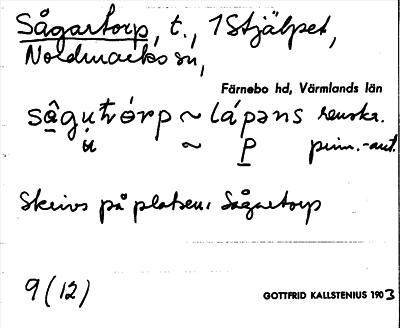 Sågartorp, t., 1 Stjälpet,
Nordmarks sn,
Färnebo hd, Värmlands län
~ renskr.
~ p prim.-ant.
Skrivs på platsen: Sågartorp
9 (12)
GOTTFRID KALLSTENIUS 1903